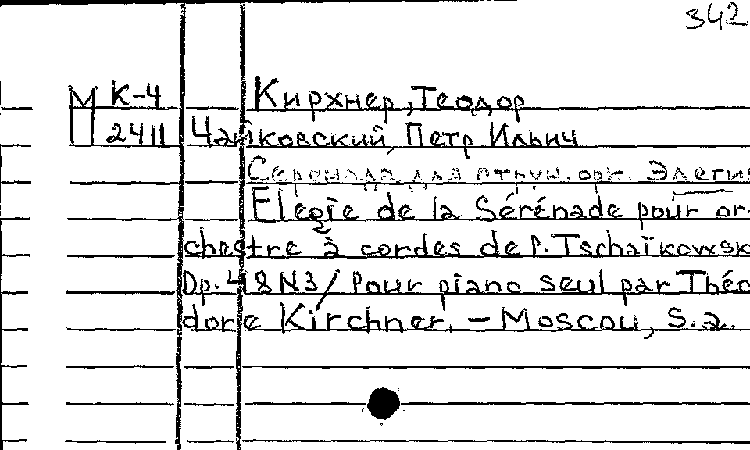 342
М К-4 Кирхнер, Теодор
П 2411 Чайковский, Петр Ильич
Серенада для струн. орк. Элегия
Elegie de la Sérénade pour or-
chestre à cordes de P. Tschaïkowsk
Op. 48 N3/ Pour piano seul par Théo
dore Kirchner. - Moscou, S.a.